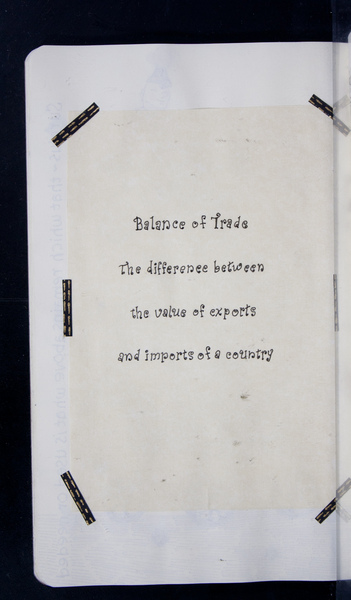 Balance of Trade
The difference between
the value of exports
and imports of a country